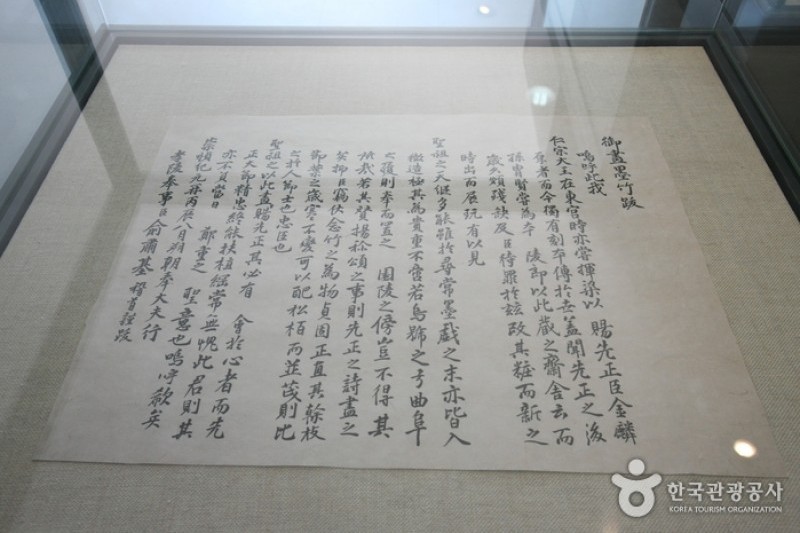 御畫墨竹跋
嗚呼此我
仁宗大王在東宮時亦嘗揮染以 賜先正臣金麟
厚者而今獨有刻本傳於世蓋聞先正之後
孫實賢嘗爲本 陵郎以此藏之齋舍云而
歲久頗殘缺及臣待罪於玆改其粧而新之
時出而展玩有以見
聖祖之天縱多能雖於尋常墨戲之末亦皆入
微造極其爲貴重不啻若烏號之弓曲阜
之履則奉而置之 園陵之傍豈不得其
所哉若其贊揚稱頌之事則先正之詩盡之
矣抑臣竊伏念竹之爲物貞固正直其餘枝
節葉之歲寒不變可以配松栢而並茂則比
之於人節士也忠臣也
聖祖之以此畫賜先正其必有 會於心者而先
正大節精忠終能扶植綱常無愧此君則其
亦不負當日 鄭重之 聖意也嗚呼歎矣
崇禎紀元後丙辰八月朔朝奉大夫行
孝陵奉事臣兪肅基稽首謹跋
한국관광공사
KOREA TOURISM ORGANIZATION